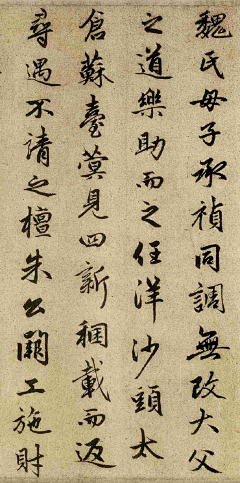 魏氏母子承禎同調無改大父
之道樂助而之任洋沙頭太
倉蘇臺蓂見四新稇載而返
尋遇不請之檀朱公闢工施財